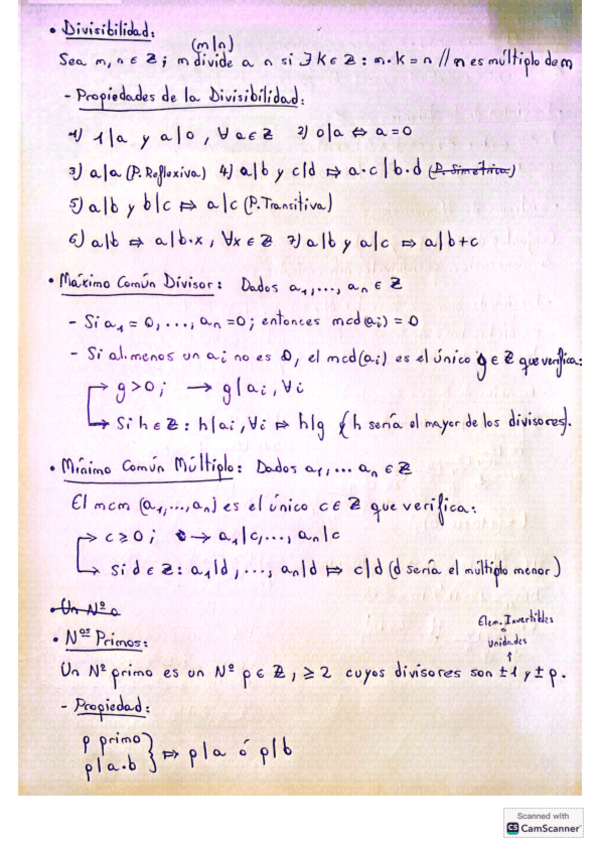 • Divisibilidad:
(m|n)
Sea m, n ∈ ℤ; m divide a n si ∃ k ∈ ℤ : m·k = n // n es múltiplo de m
- Propiedades de la Divisibilidad:
1) 1|a y a|0, ∀a∈ℤ 2) 0|a ⇔ a=0
3) a|a (P. Reflexiva) 4) a|b y c|d ⇒ a·c|b·d (P. Simétrica)
5) a|b y b|c ⇒ a|c (P. Transitiva)
6) a|b ⇒ a|b·x, ∀x∈ℤ 7) a|b y a|c ⇒ a|b+c
• Máximo Común Divisor: Dados a₁,..., aₙ ∈ ℤ
- Si a₁ = 0, ..., aₙ = 0; entonces mcd(aᵢ) = 0
- Si al menos un aᵢ no es 0, el mcd(aᵢ) es el único g ∈ ℤ que verifica:
→ g>0; → g|aᵢ, ∀i
→ Si h ∈ ℤ: h|aᵢ, ∀i ⇒ h|g (h sería el mayor de los divisores).
• Mínimo Común Múltiplo: Dados a₁,... aₙ ∈ ℤ
El mcm (a₁,...,aₙ) es el único c∈ ℤ que verifica:
→ c ≥ 0; → a₁|c,..., aₙ|c
→ Si d ∈ ℤ: a₁|d, ..., aₙ|d ⇒ c|d (d sería el múltiplo menor)
• Un Nº
Elem. Invertibles
• Nºˢ Primos:
Unidades
↑
Un Nº primo es un Nº p ∈ ℤ, ≥ 2 cuyos divisores son ±1 y ± p.
- Propiedad:
p primo
p|a·b } ⇒ p|a ó p|b
Scanned with
CS CamScanner